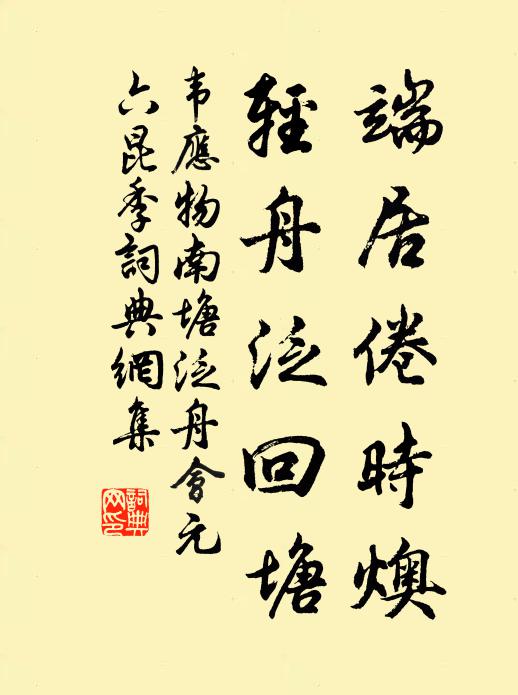 端居倦時燠
輕舟泛回塘
韦應物南塘泛舟會元
六昆季詞典網集
詞典網印